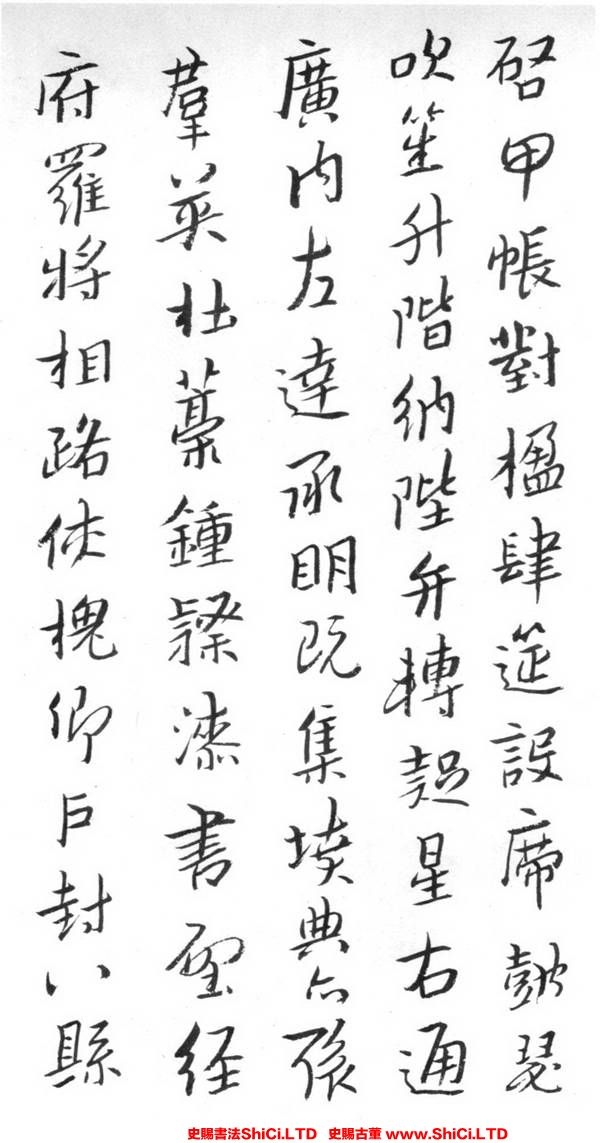 啓甲帳對楹肆筵設席鼓瑟
吹笙升階納陛弁轉疑星右通
廣内左達承明既集墳典亦聚
羣英杜藁鍾隸漆書壁経
府羅將相路俠槐卿戶封八縣
史賜書法ShiCi.LTD 史賜古董 www.ShiCi.LTD